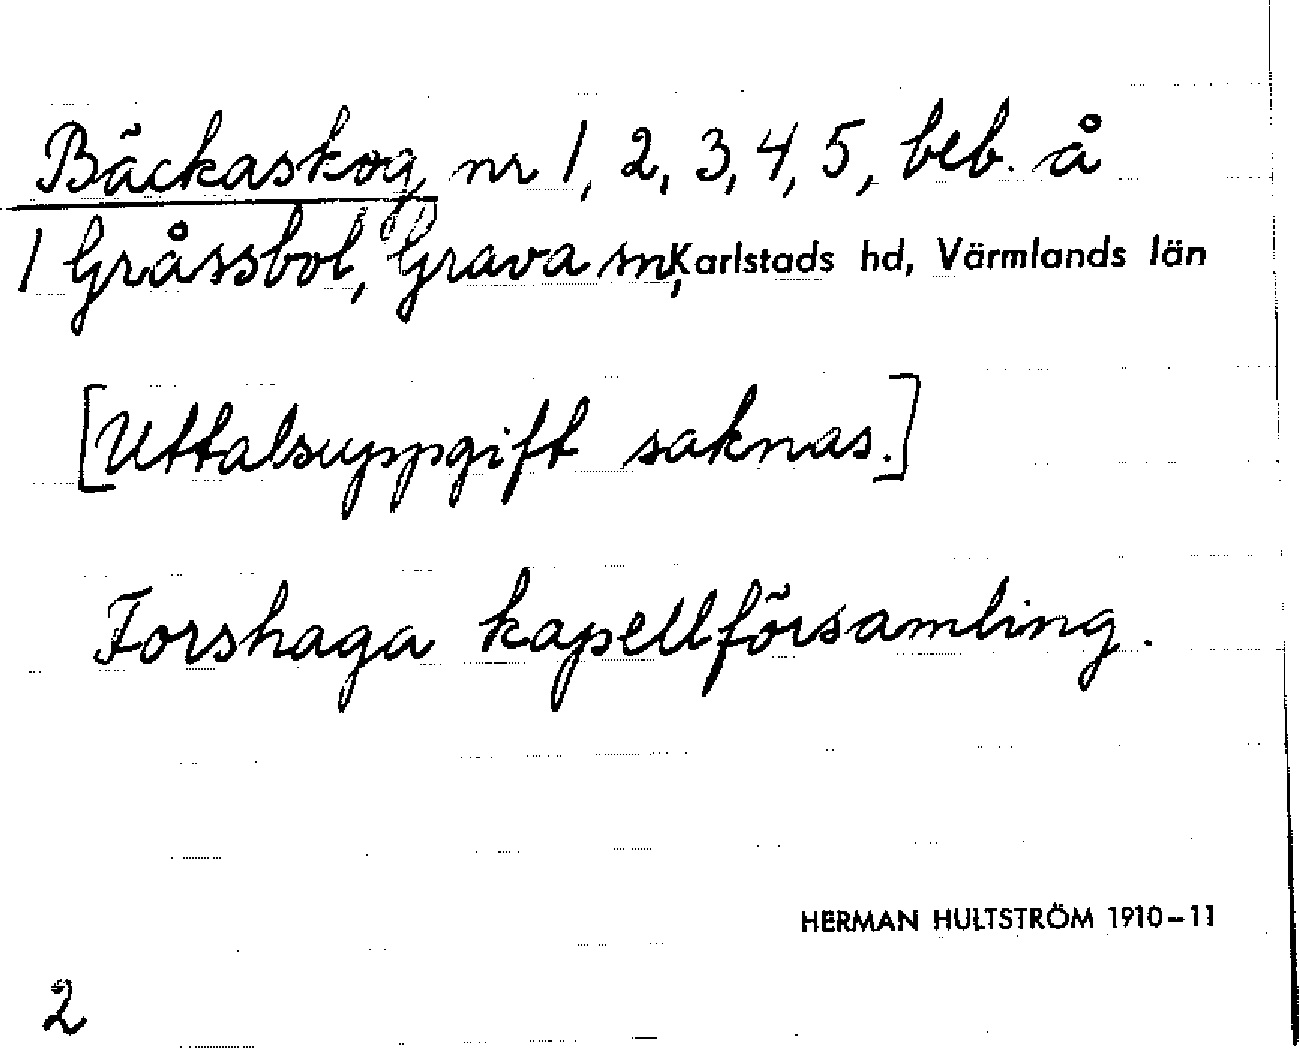 Bäckaskog, nr 1, 2, 3, 4, 5, beb. å
1 Gråssbol, Grava sn, Karlstads hd, Värmlands län
[Uttalsuppgift saknas.]
Forshaga kapellförsamling.
HERMAN HULTSTRÖM 1910–11
2